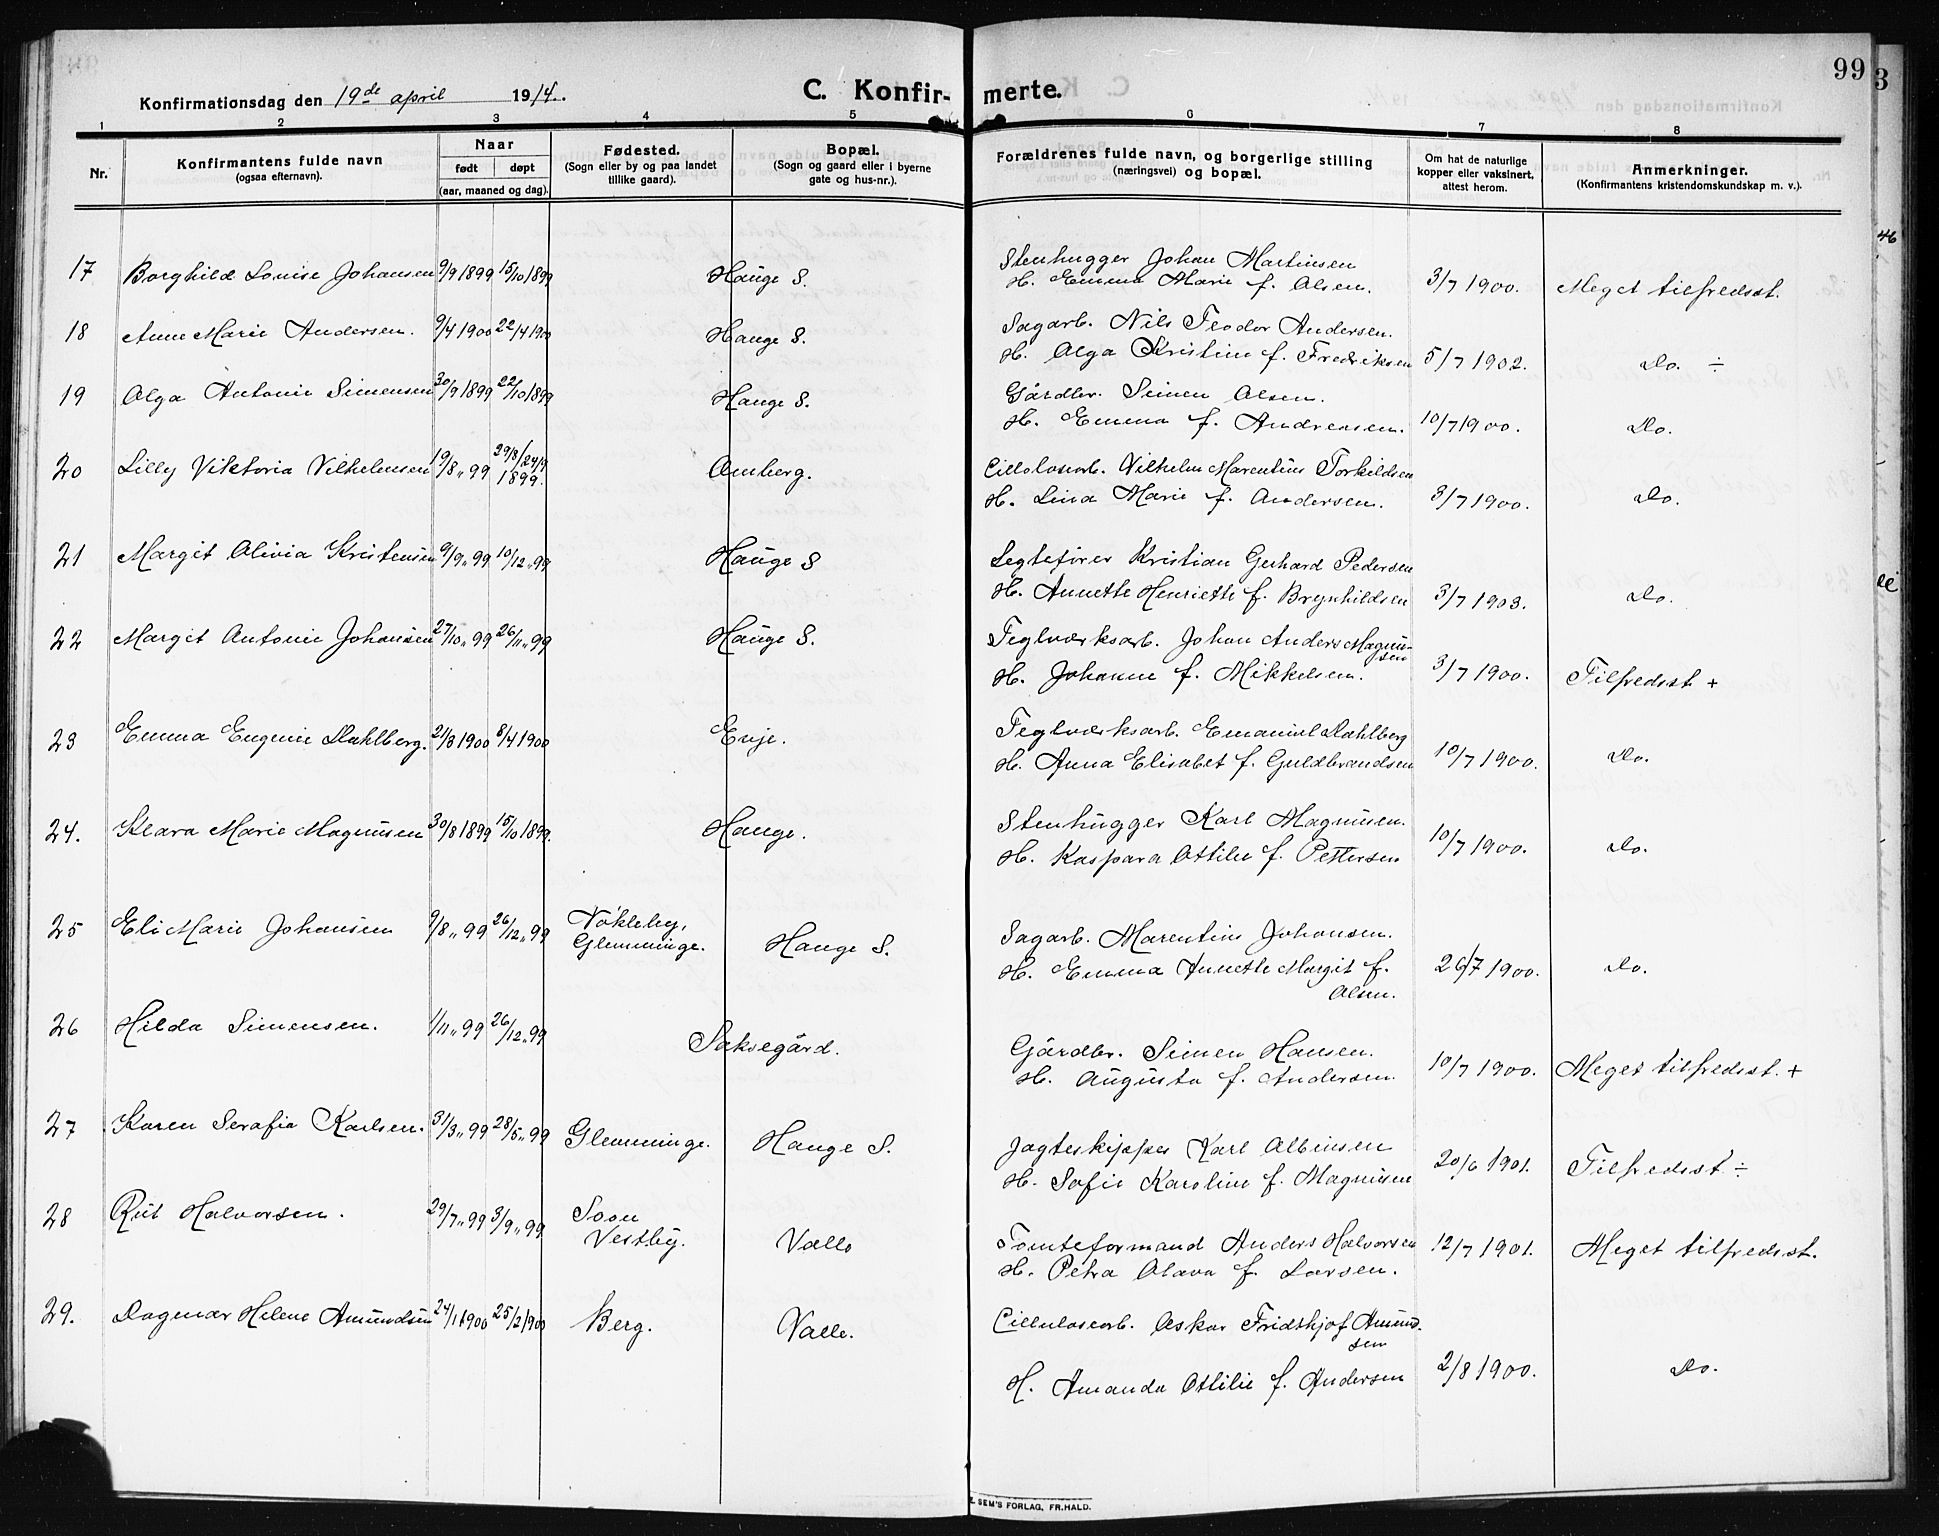 99
3
Konfirmationsdag den 19de april 1914.
C. Konfirmerte.
1 2 3 4 5 6 7 8
Nr. Konfirmantens fulde navn (ogsaa efternavn). Naar født døpt (aar, maaned og dag). Fødested. (Sogn eller by og paa landet tillike gaard). Bopæl. (Sogn og gaard eller i byerne gate og hus-nr.). Forældrenes fulde navn, og borgerlige stilling (næringsvei) og bopæl. Om hat de naturlige kopper eller vaksinert, attest herom. Anmerkninger. (Konfirmantens kristendomskundskap m. v.).
17 Borghild Louise Johansen 9/9 1899 15/10 1899 Hauge S. Stenhugger Johan Martinsen
H. Emma Marie f. Olsen. 3/7 1900. Meget tilfredsst.
18 Anne Marie Andersen. 9/4 1900 22/4 1900 Hauge S. Sagarb. Nils Teodor Andersen.
H. Olga Kristine f. Fredriksen 5/7 1902. Do. ÷
19 Olga Antonie Simensen 30/9 1899 22/10 1899 Hauge S. Gårdbr. Simen Olsen.
H. Emma f. Andreasen. 10/7 1900. Do.
20 Lilly Viktoria Vilhelmsen 19/8 „ 99 1899. Omberg. Cellulosearb. Vilhelm Marentius Torkildsen
H. Lina Marie f. Andersen. 3/7 1900. Do.
21 Margit Olivia Kristensen 9/9 „ 99 10/12 „ 99 Hauge S Legtefører Kristian Gerhard Pedersen
H. Annette Henriette f. Brynhildsen 3/7 1903. Do.
22 Margit Antonie Johansen 27/10 „ 99 26/11 „ 99 Hauge S. Teglverksarb. Johan Anders Magnussen
H. Johanne f. Mikkelsen. 3/7 1900. Tilfredsst +
23 Emma Eugenie Dahlberg. 21/3 1900 8/4 1900 Evje. Teglverksarb. Emanuel Dahlberg
H. Anna Elisabet f. Guldbrandsen 10/7 1900. Do.
24. Klara Marie Magnusen 30/8 1899 15/10 1899. Hauge. Stenhugger Karl Magnusen.
H. Kaspara Ottilie f. Pettersen 10/7 1900. Do.
25 Eli Marie Johansen 9/8 „ 99 26/12 „ 99 Nøkleby, Glemminge. Hauge S. Sagarb. Marentius Johansen.
H. Emma Annette Margit f. Olsen. 26/7 1900. Do.
26 Hilda Simensen. 1/11 „ 99 26/12 „ 99 Saksegård. Gårdbr. Simen Hansen.
H. Augusta f. Andersen. 10/7 1900. Meget tilfredsst. +
27 Karen Serafia Karlsen. 31/3 „ 99 28/5 „ 99 Glemminge. Hauge S. Jagteskipper Karl Albinsen
H. Sofie Karoline f. Magnusen 20/6 1901. Tilfredsst ÷
28 Rut Halvorsen. 29/7 „ 99 3/9 „ 99 Soon Vestby. Valle Tomteformand Anders Halvorsen
H. Petra Olava f. Larsen. 12/7 1901. Meget tilfredsst.
29. Dagmar Helene Amundsen 24/1 1900 25/2 1900 Berg. Valle. Cellulosearb. Oskar Fridthjof Amundsen
H. Amanda Ottilie f. Andersen 2/8 1900. Do.
SEM'S FORLAG, FR.HALD.